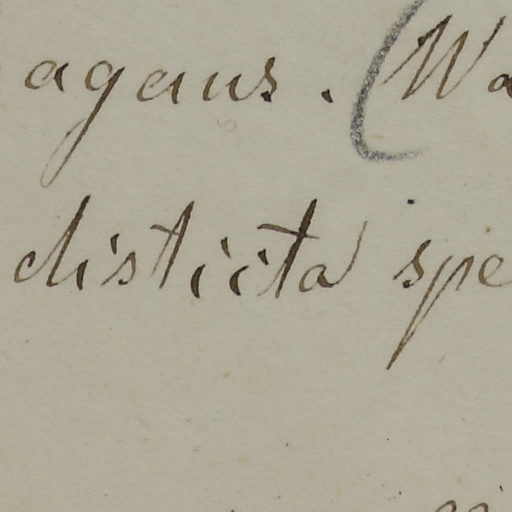 agaus. (Wa
disticta spe